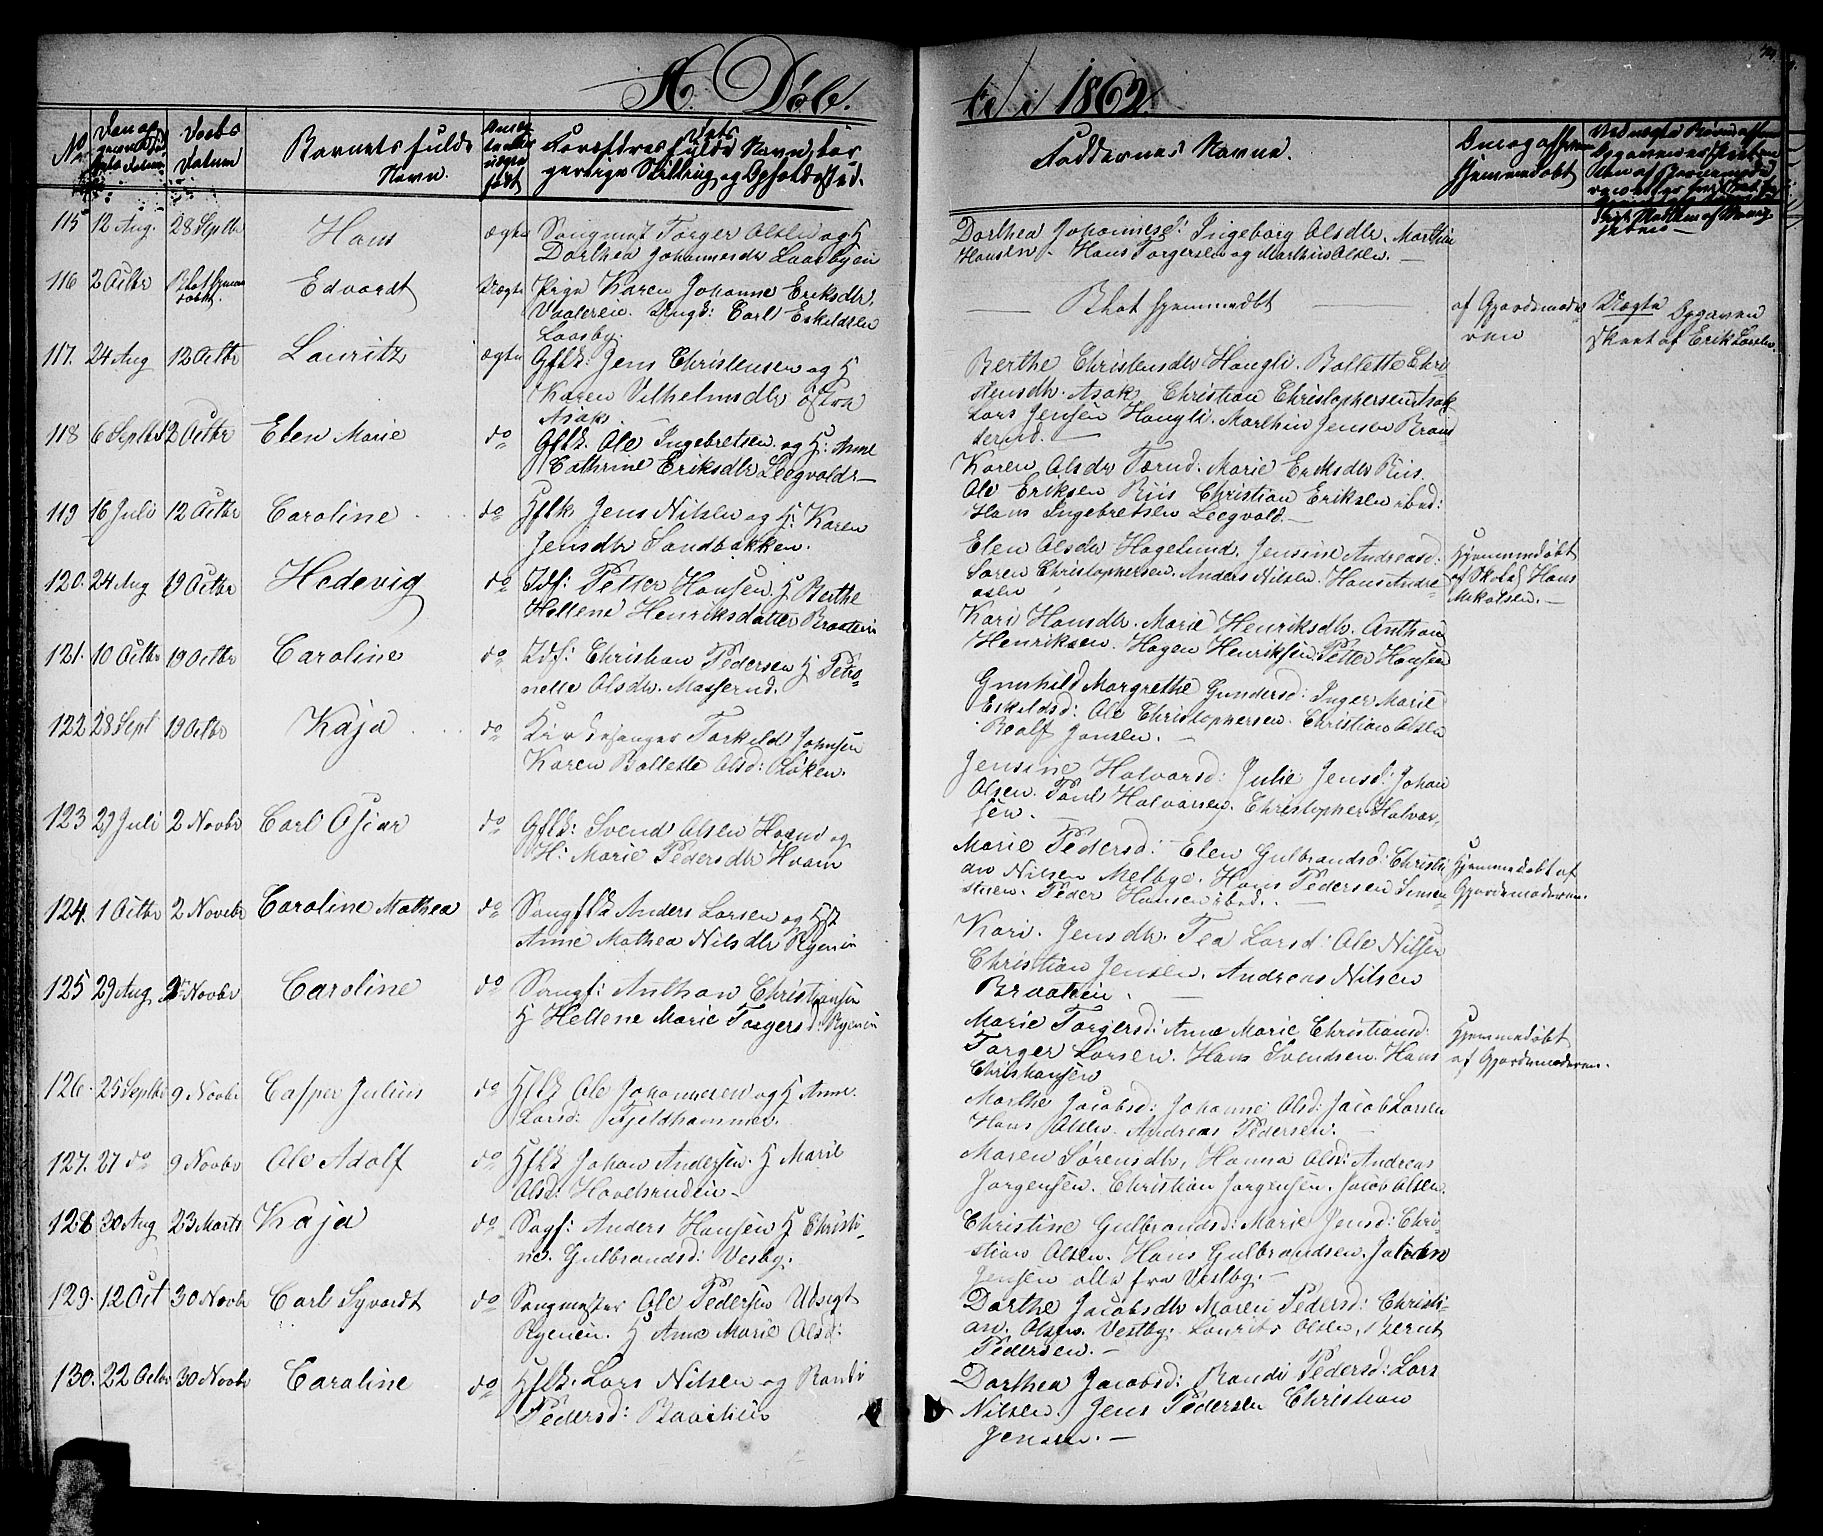 A. Døb-
te i 1862.
No
Barnets fulde
Navn.
Forældres fulde Navn, bor-
gerlige Stilling og Opholdssted.
Faddernes Navne.
Om og af hvem
hjemmedøbt
115 12 Aug. 28 Septbr Hans ægte Saugmst Torger Olsen og H
Dorthea Johannesdtr Laasbyen
Dorthea Johannesd: Ingeborg Olsdtr. Marthin
Hansen. Hans Torgersen og Marthin Olsen. —
116 2 Octbr Blot hjemme
døbt. Edvardt Uægte Pige Karen Johanne Eriksdtr.
Vaaleren. Ungk: Carl Eskildsen
Laasby.
Blot hjemmedøbt — af Gjordemode-
ren
Uægte Opgaven
skeet af Erik Larsen.
117. 24 Aug 12 Octbr Lauritz ægte Gflk. Jens Christensen og H
Karen Vilhelmsdtr østre
Asak.
Berthe Christensdtr Haugli. Bollette Chri-
stensdtr. Asak. Christian Christophersen Asak
Lars Jensen Haugli. Marthin Jensen Braa-
terud. —
118 6 Septbr 12 Octbr Elen Marie do Gflk. Ole Ingebretsen og H: Anne
Cathrine Eriksdtr Leegvold. —
Karen Olsdtr Tærud. Marie Eriksdtr Riis.
Ole Eriksen Riis Christian Eriksen ibid:
Hans Ingebretsen Leegvold. —
119 16 Juli 12 Octbr Caroline do Hflk Jens Nilsen og H: Karen
Jensdtr Sandbakken.
Elen Olsdtr Hagelund. Jensine Andreasd.
Søren Christophersen. Anders Nilsen. Hans Andre-
asen
Hjemmedøbt
af Skolel Hans
Mikalsen. —
120. 24 Aug 19 Octbr Hedevig do Idf: Petter Hansen H Berthe
Hellene Henriksdatter Braaten
Kari Hansdtr. Marie Henriksdtr. Anthon
Henriksen. Hagen Henriksen. Petter Hansen
121. 10 Octbr 19 Octbr Caroline do Idf: Christian Pedersen H Petro-
nelle Olsdtr. Masserud.
Gunhild Margrethe Gundersd: Inger Marie
Eskildsd: Ole Christophersen. Christian Olsen
Roalf Jensen. —
122 28 Sept 19 Octbr Kaja do Kirkesanger Torkild Johnsen
Karen Bollette Olsd: Løken.
Jensine Halvorsd: Julie Jensd: Johan
Olsen. Paul Halvorsen. Christopher Halvor-
sen. —
123 29 Juli 2 Novbr Carl Oscar do Gflk: Svend Olsen Hvam og
H: Marie Pedersdtr Hvam
Marie Pedersd: Elen Gulbrandsd: Christi-
an Nilsen Melbye. Hans Pedersen Simen-
støen. Peder Hansen ibid. —
Hjemmedøbt af
Gjordemoderen.
124. 1 Octbr 2 Novebr Caroline Mathea do Saugflk Anders Larsen og Hst
Anne Mathea Nilsdtr Ryenen
Kari Jensdtr. Tea Larsd: Ole Nilsen
Christian Jensen. Andreas Nilsen
Braaten. —
125 29 Aug 2 Novbr Caroline do Saugf: Anthon Christiansen
H Hellene Marie Torgersd: Ryenen
Marie Torgersd: Anne Marie Christiansd.
Torger Larsen. Hans Svendsen. Hans
Christiansen
Hjemmedøbt
af Gjordemoderen.
126. 25 Septbr 9 Novbr Casper Julius do Hflk Ole Johannesen og H Anne
Larsd: Fjeldhammer.
Marthe Jacobsd: Johanne Olsd: Jacob Larsen
Hans Olsen. Andreas Pedersen.
127. 27 do 9 Novbr Ole Adolf do Hflk Johan Andersen. H Marie
Olsd: Hovelsruden —
Maren Sørensdtr. Hanna Olsd: Andreas
Jørgensen. Christian Jørgensen. Jacob Olsen.
128 30 Aug 23 Marts Kaja do Sagf: Anders Hansen H Christi-
ne Gulbrandsd: Vesby.
Christine Gulbrandsd: Marie Jensd: Chri-
stian Olsen. Hans Gulbrandsen. Johan
Jensen alle fra Vestby. —
129. 12 Oct 30 Novbr Carl Syvardt do Saugmester Ole Pedersen Udsigt
Ryenen. H Anne Marie Olsd:
Dorthe Jacobsdtr Maren Pedersd: Christi-
an Olsen Vestby. Laurits Olsen, Bernt
Pedersen. —
130. 22 Octbr 30 Novbr Caroline do Hflk. Lars Nilsen og Randi
Pedersd: Baaslien
Dorthea Jacobsd: Randi Pedersd: Lars
Nilsen. Jens Pedersen Christian
Jensen. —